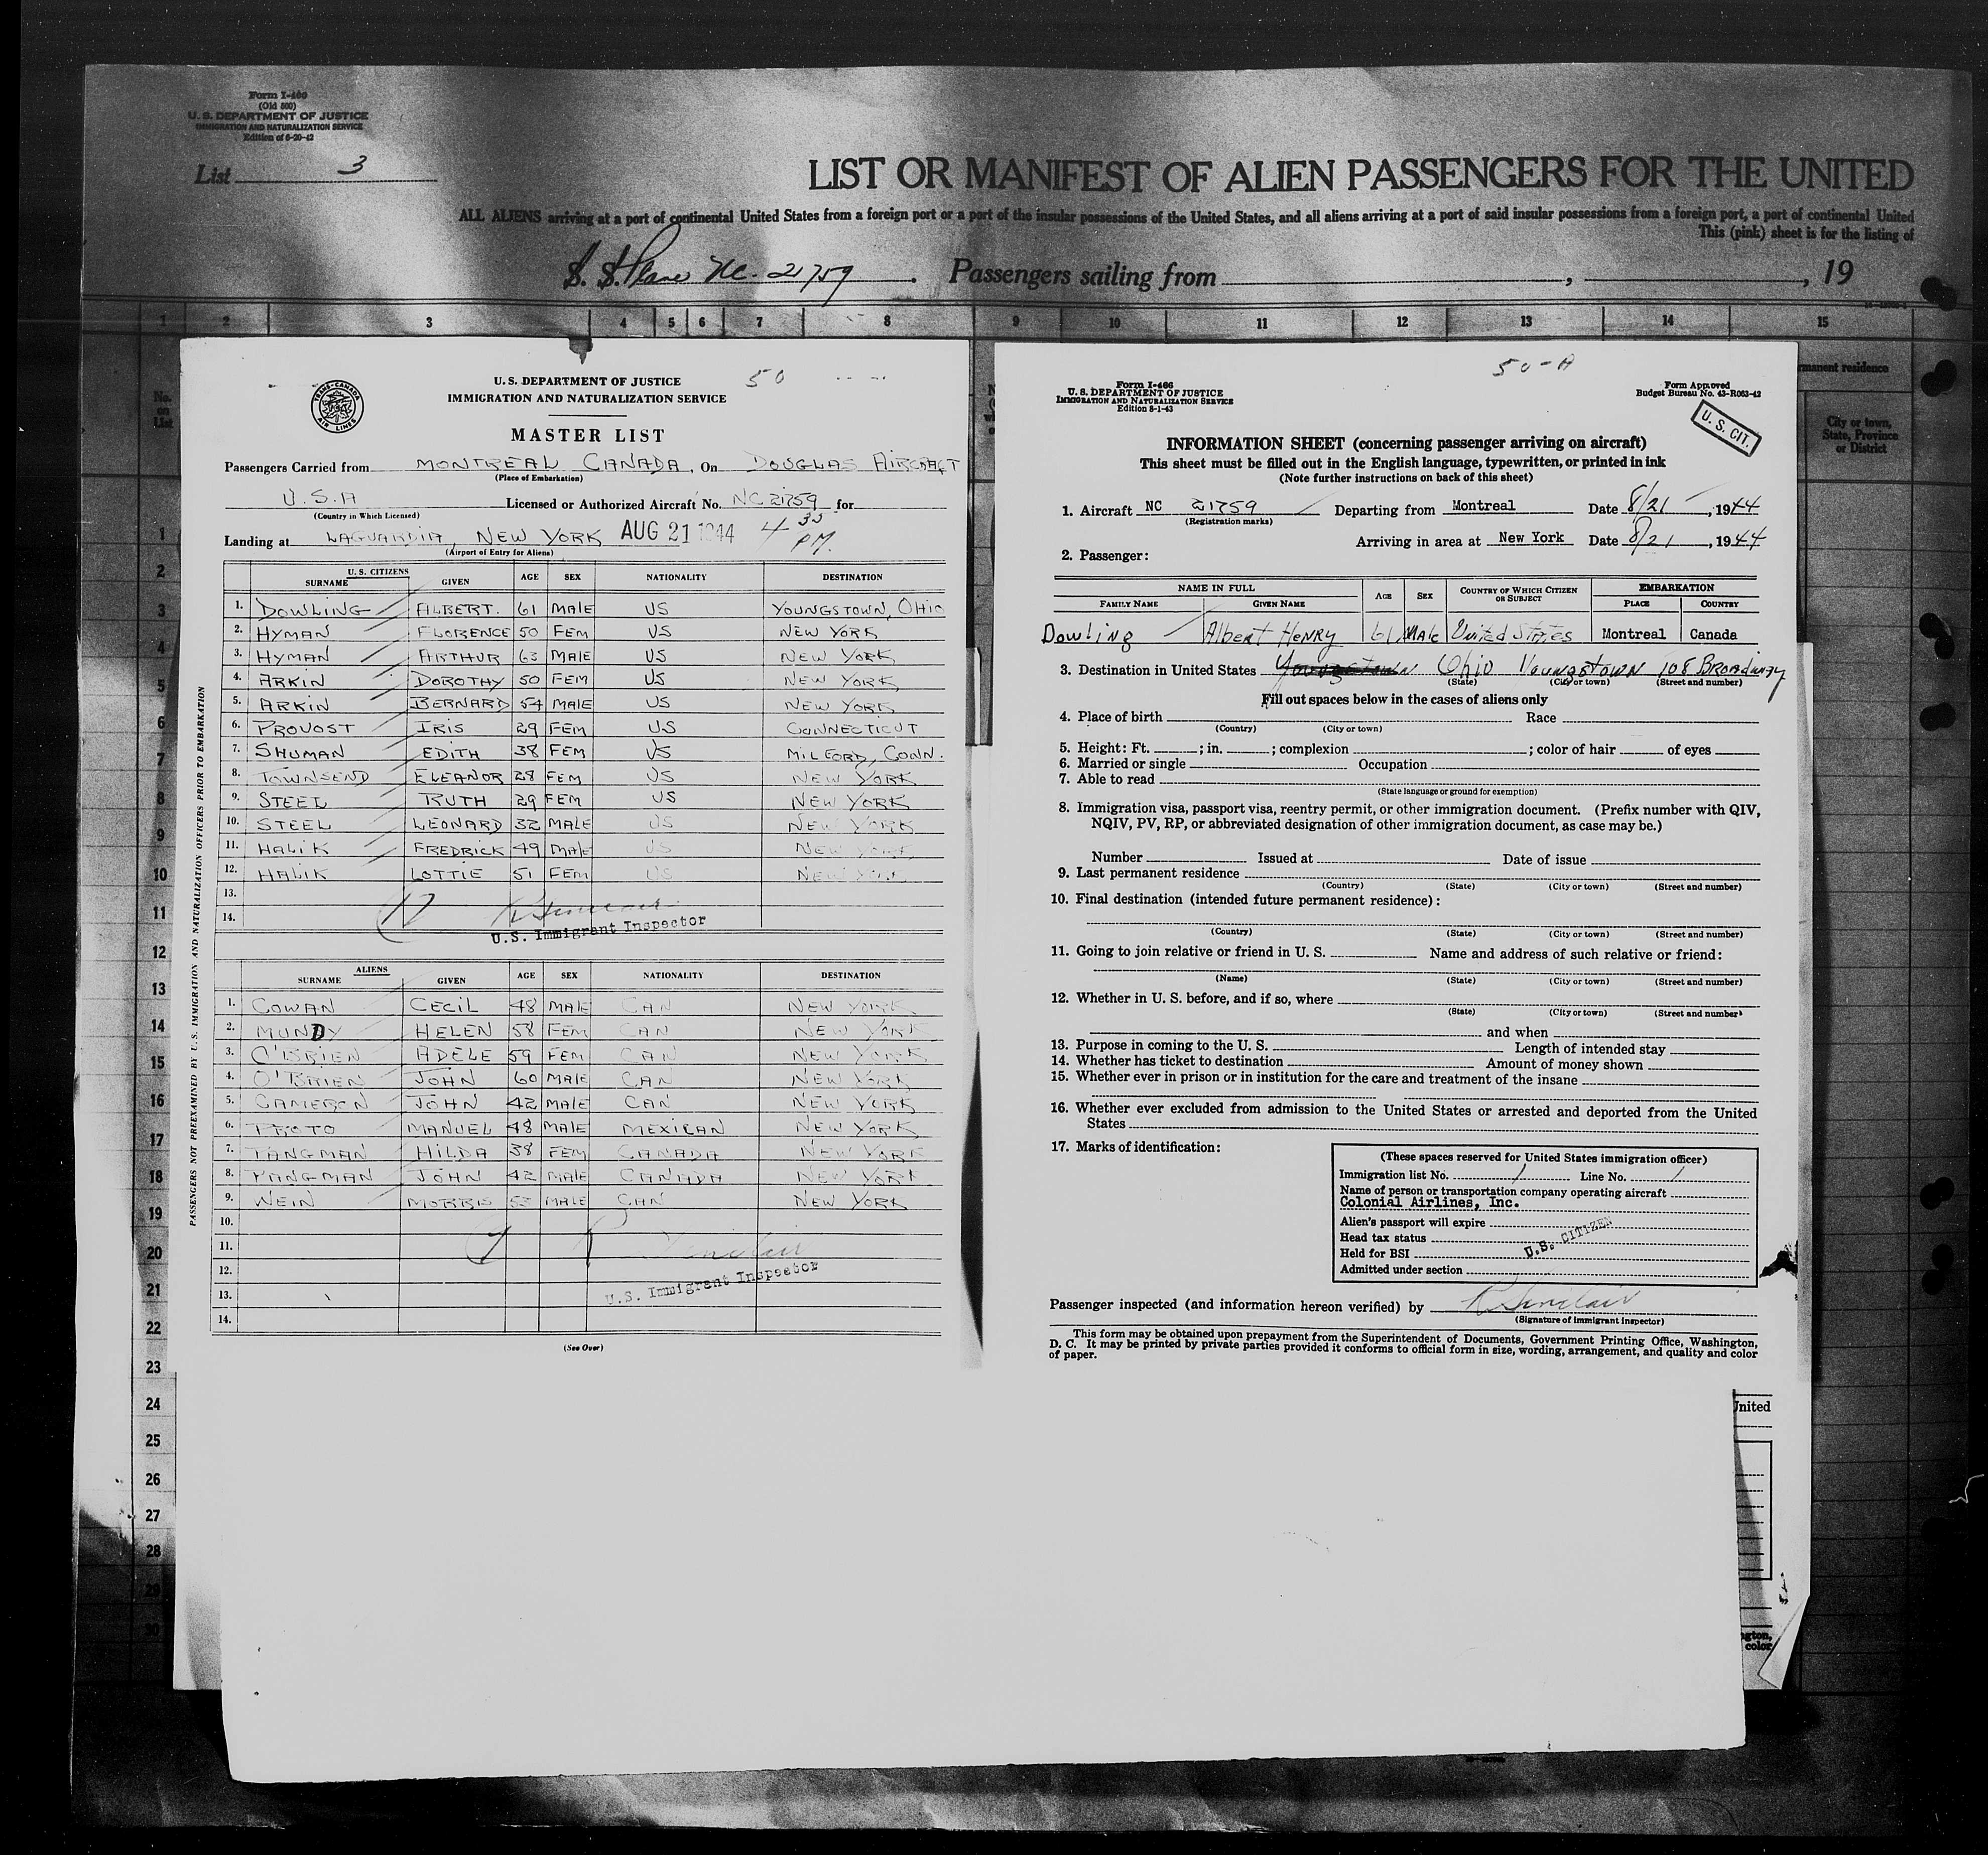 Form I-460
(Old 500)
U. S. DEPARTMENT OF JUSTICE
IMMIGRATION AND NATURALIZATION SERVICE
Edition of 6-20-42
List 3
LIST OR MANIFEST OF ALIEN PASSENGERS FOR THE UNITED
ALL ALIENS arriving at a port of continental United States from a foreign port or a port of the insular possessions of the United States, and all aliens arriving at a port of said insular possessions from a foreign port, a port of continental United
This (pink) sheet is for the listing of
S. S. Plane NC. 21759. Passengers sailing from , , 19
1 2 3 4 5 6 7 8 9 10 11 12 13 14 15
No. on List
manent residence
City or town, State, Province or District
1
2
3
4
5
6
7
8
9
10
11
12
13
14
15
16
17
18
19
20
21
22
23
24
25
26
27
28
29
30
TRANS-CANADA AIR LINES
50
U. S. DEPARTMENT OF JUSTICE
IMMIGRATION AND NATURALIZATION SERVICE
MASTER LIST
Passengers Carried from MONTREAL CANADA, On DOUGLAS AIRCRAFT
(Place of Embarkation)
U.S.A Licensed or Authorized Aircraft No. NC 21759 for
(Country in Which Licensed)
Landing at LAGUARDIA, NEW YORK AUG 21 1944 4 33 PM.
(Airport of Entry for Aliens)
PASSENGERS NOT PREEXAMINED BY U.S. IMMIGRATION AND NATURALIZATION OFFICERS PRIOR TO EMBARKATION
U.S. CITIZENS
SURNAME GIVEN AGE SEX NATIONALITY DESTINATION
1. DOWLING ALBERT. 61 MALE US YOUNGSTOWN, OHIO
2. HYMAN FLORENCE 50 FEM US NEW YORK
3. HYMAN ARTHUR 63 MALE US NEW YORK
4. ARKIN DOROTHY 50 FEM US NEW YORK
5. ARKIN BERNARD 54 MALE US NEW YORK
6. PROVOST IRIS 29 FEM US CONNECTICUT
7. SHUMAN EDITH 38 FEM US MILFORD, CONN.
8. TOWNSEND ELEANOR 28 FEM US NEW YORK
9. STEEL RUTH 29 FEM US NEW YORK
10. STEEL LEONARD 32 MALE US NEW YORK
11. HALIK FREDRICK 49 MALE US NEW YORK
12. HALIK LOTTIE 51 FEM US NEW YORK
13.
14. 12 R Sinclair
U.S. Immigrant Inspector
ALIENS
SURNAME GIVEN AGE SEX NATIONALITY DESTINATION
1. COWAN CECIL 48 MALE CAN NEW YORK
2. MUNDY HELEN 58 FEM CAN NEW YORK
3. O'BRIEN ADELE 59 FEM CAN NEW YORK
4. O'BRIEN JOHN 60 MALE CAN NEW YORK
5. CAMERON JOHN 42 MALE CAN NEW YORK
6. MANUEL 48 MALE MEXICAN NEW YORK
7. TANGMAN HILDA 38 FEM CANADA NEW YORK
8. TANGMAN JOHN 42 MALE CANADA NEW YORK
9. WEIN MORRIS 53 MALE CAN NEW YORK
10.
11. 9 R Sinclair
12.
U.S. Immigrant Inspector
13.
14.
(See Over)
50-A
Form I-466
U. S. DEPARTMENT OF JUSTICE
IMMIGRATION AND NATURALIZATION SERVICE
Edition 8-1-43
Form Approved
Budget Bureau No. 43-R063-42
U. S. CIT.
INFORMATION SHEET (concerning passenger arriving on aircraft)
This sheet must be filled out in the English language, typewritten, or printed in ink
(Note further instructions on back of this sheet)
1. Aircraft NC 21759 Departing from Montreal Date 8/21, 1944
(Registration marks)
Arriving in area at New York Date 8/21, 1944
2. Passenger:
NAME IN FULL AGE SEX COUNTRY OF WHICH CITIZEN OR SUBJECT EMBARKATION
FAMILY NAME GIVEN NAME PLACE COUNTRY
Dowling Albert HENRY 61 Male United States Montreal Canada
3. Destination in United States Ohio YOUNGSTOWN 108 BROADWAY
(State) (City or town) (Street and number)
Fill out spaces below in the cases of aliens only
4. Place of birth Race
(Country) (City or town)
5. Height: Ft. ; in. ; complexion ; color of hair of eyes
6. Married or single Occupation
7. Able to read
(State language or ground for exemption)
8. Immigration visa, passport visa, reentry permit, or other immigration document. (Prefix number with QIV,
NQIV, PV, RP, or abbreviated designation of other immigration document, as case may be.)
Number Issued at Date of issue
9. Last permanent residence
(Country) (State) (City or town) (Street and number)
10. Final destination (intended future permanent residence):
(Country) (State) (City or town) (Street and number)
11. Going to join relative or friend in U. S. Name and address of such relative or friend:
(Name) (State) (City or town) (Street and number)
12. Whether in U. S. before, and if so, where
(State) (City or town) (Street and number)
and when
13. Purpose in coming to the U. S. Length of intended stay
14. Whether has ticket to destination Amount of money shown
15. Whether ever in prison or in institution for the care and treatment of the insane
16. Whether ever excluded from admission to the United States or arrested and deported from the United
States
17. Marks of identification:
(These spaces reserved for United States immigration officer)
Immigration list No. 1 Line No. 1
Name of person or transportation company operating aircraft
Colonial Airlines, Inc.
Alien's passport will expire
Head tax status
Held for BSI
U.S. CITIZEN
Admitted under section
Passenger inspected (and information hereon verified) by R Sinclair
(Signature of immigrant inspector)
This form may be obtained upon prepayment from the Superintendent of Documents, Government Printing Office, Washington,
D. C. It may be printed by private parties provided it conforms to official form in size, wording, arrangement, and quality and color
of paper.
United
gton,
color